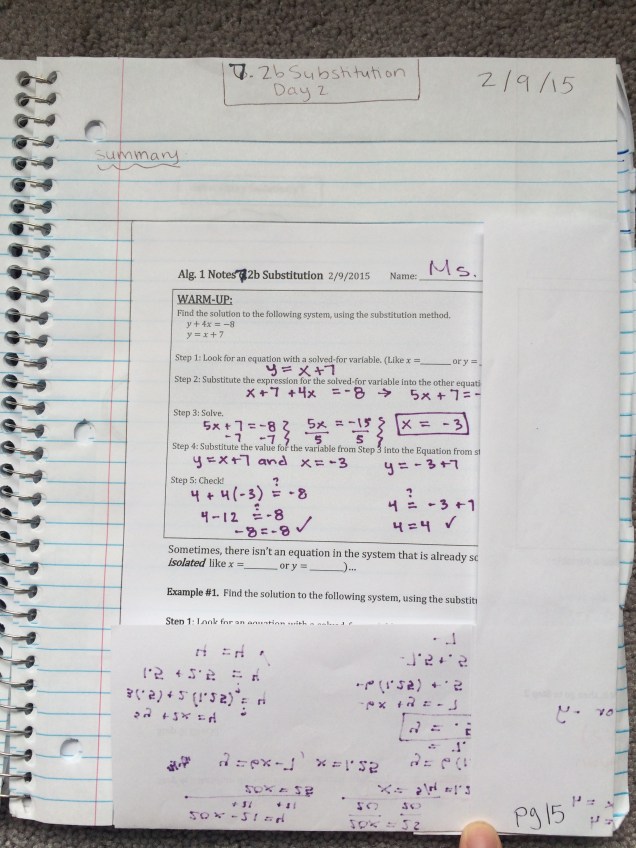 7.2b Substitution
Day 2
2/9/15
Summary
Alg. 1 Notes 7.2b Substitution 2/9/2015 Name: Ms.
WARM-UP:
Find the solution to the following system, using the substitution method.
y + 4x = −8
y = x + 7
Step 1: Look for an equation with a solved-for variable. (Like x = ______ or y =
y = x+7
Step 2: Substitute the expression for the solved-for variable into the other equati
x+7 +4x = -8 → 5x + 7 = -
Step 3: Solve.
5x + 7 = -8 5x = -15 x = -3
-7 -7 5 5
Step 4: Substitute the value for the variable from Step 3 into the Equation from st
y = x+7 and x = -3 y = -3+7
Step 5: Check!
4 + 4(-3) ?= -8 4 ?= -3 + 7
4 - 12 ?= -8 4 = 4 ✓
-8 = -8 ✓
Sometimes, there isn't an equation in the system that is already so
isolated like x = ______ or y = ______)...
Example #1. Find the solution to the following system, using the substitu
Step 1: Look for an equation with a solved f
4 = 4
1.5 + 2.5 = 4
3(.5) + 2(1.25) = 4
3y + 2x = 4
y = 6x - 7, x = 1.25
20x = 25
+21 +21
20x - 21 = 4
-7
-7.5 + .5
-6(1.25) + .5
-6x + y = -7
y = .5
y = 6(1
20 20
20x = 25
pg 15